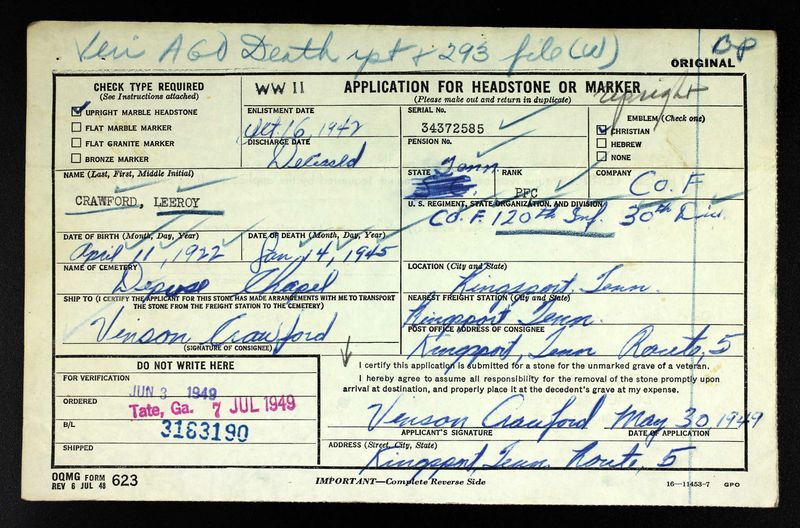 Veri AGO Death rpt + 293 file (W)
BP
ORIGINAL
CHECK TYPE REQUIRED
(See Instructions attached)
UPRIGHT MARBLE HEADSTONE
FLAT MARBLE MARKER
FLAT GRANITE MARKER
BRONZE MARKER
WW II
APPLICATION FOR HEADSTONE OR MARKER
(Please make out and return in duplicate)
upright
ENLISTMENT DATE
Oct. 16, 1942
DISCHARGE DATE
Deceased
SERIAL No.
34372585
PENSION No.
EMBLEM (Check one)
CHRISTIAN
HEBREW
NONE
NAME (Last, First, Middle Initial)
CRAWFORD, LEEROY
STATE
Tenn
RANK
PFC
COMPANY
Co. F
U. S. REGIMENT, STATE ORGANIZATION, AND DIVISION
Co. F. 120th Inf. 30th Div.
DATE OF BIRTH (Month, Day, Year)
April 11, 1922
DATE OF DEATH (Month, Day, Year)
Jan. 14, 1945
NAME OF CEMETERY
Chapel
LOCATION (City and State)
Kingsport, Tenn.
SHIP TO (I CERTIFY THE APPLICANT FOR THIS STONE HAS MADE ARRANGEMENTS WITH ME TO TRANSPORT
THE STONE FROM THE FREIGHT STATION TO THE CEMETERY)
Venson Crawford
(SIGNATURE OF CONSIGNEE)
NEAREST FREIGHT STATION (City and State)
Kingsport Tenn.
POST OFFICE ADDRESS OF CONSIGNEE
Kingsport, Tenn Route, 5
DO NOT WRITE HERE
FOR VERIFICATION
JUN 3 1949
ORDERED
Tate, Ga. 7 JUL 1949
B/L
3183190
SHIPPED
I certify this application is submitted for a stone for the unmarked grave of a veteran.
I hereby agree to assume all responsibility for the removal of the stone promptly upon
arrival at destination, and properly place it at the decedent's grave at my expense.
Venson Crawford May 30 1949
APPLICANT'S SIGNATURE DATE OF APPLICATION
ADDRESS (Street, City, State)
Kingsport, Tenn. Route, 5
OQMG FORM
REV 6 JUL 48 623
IMPORTANT—Complete Reverse Side
16—11453-7 GPO